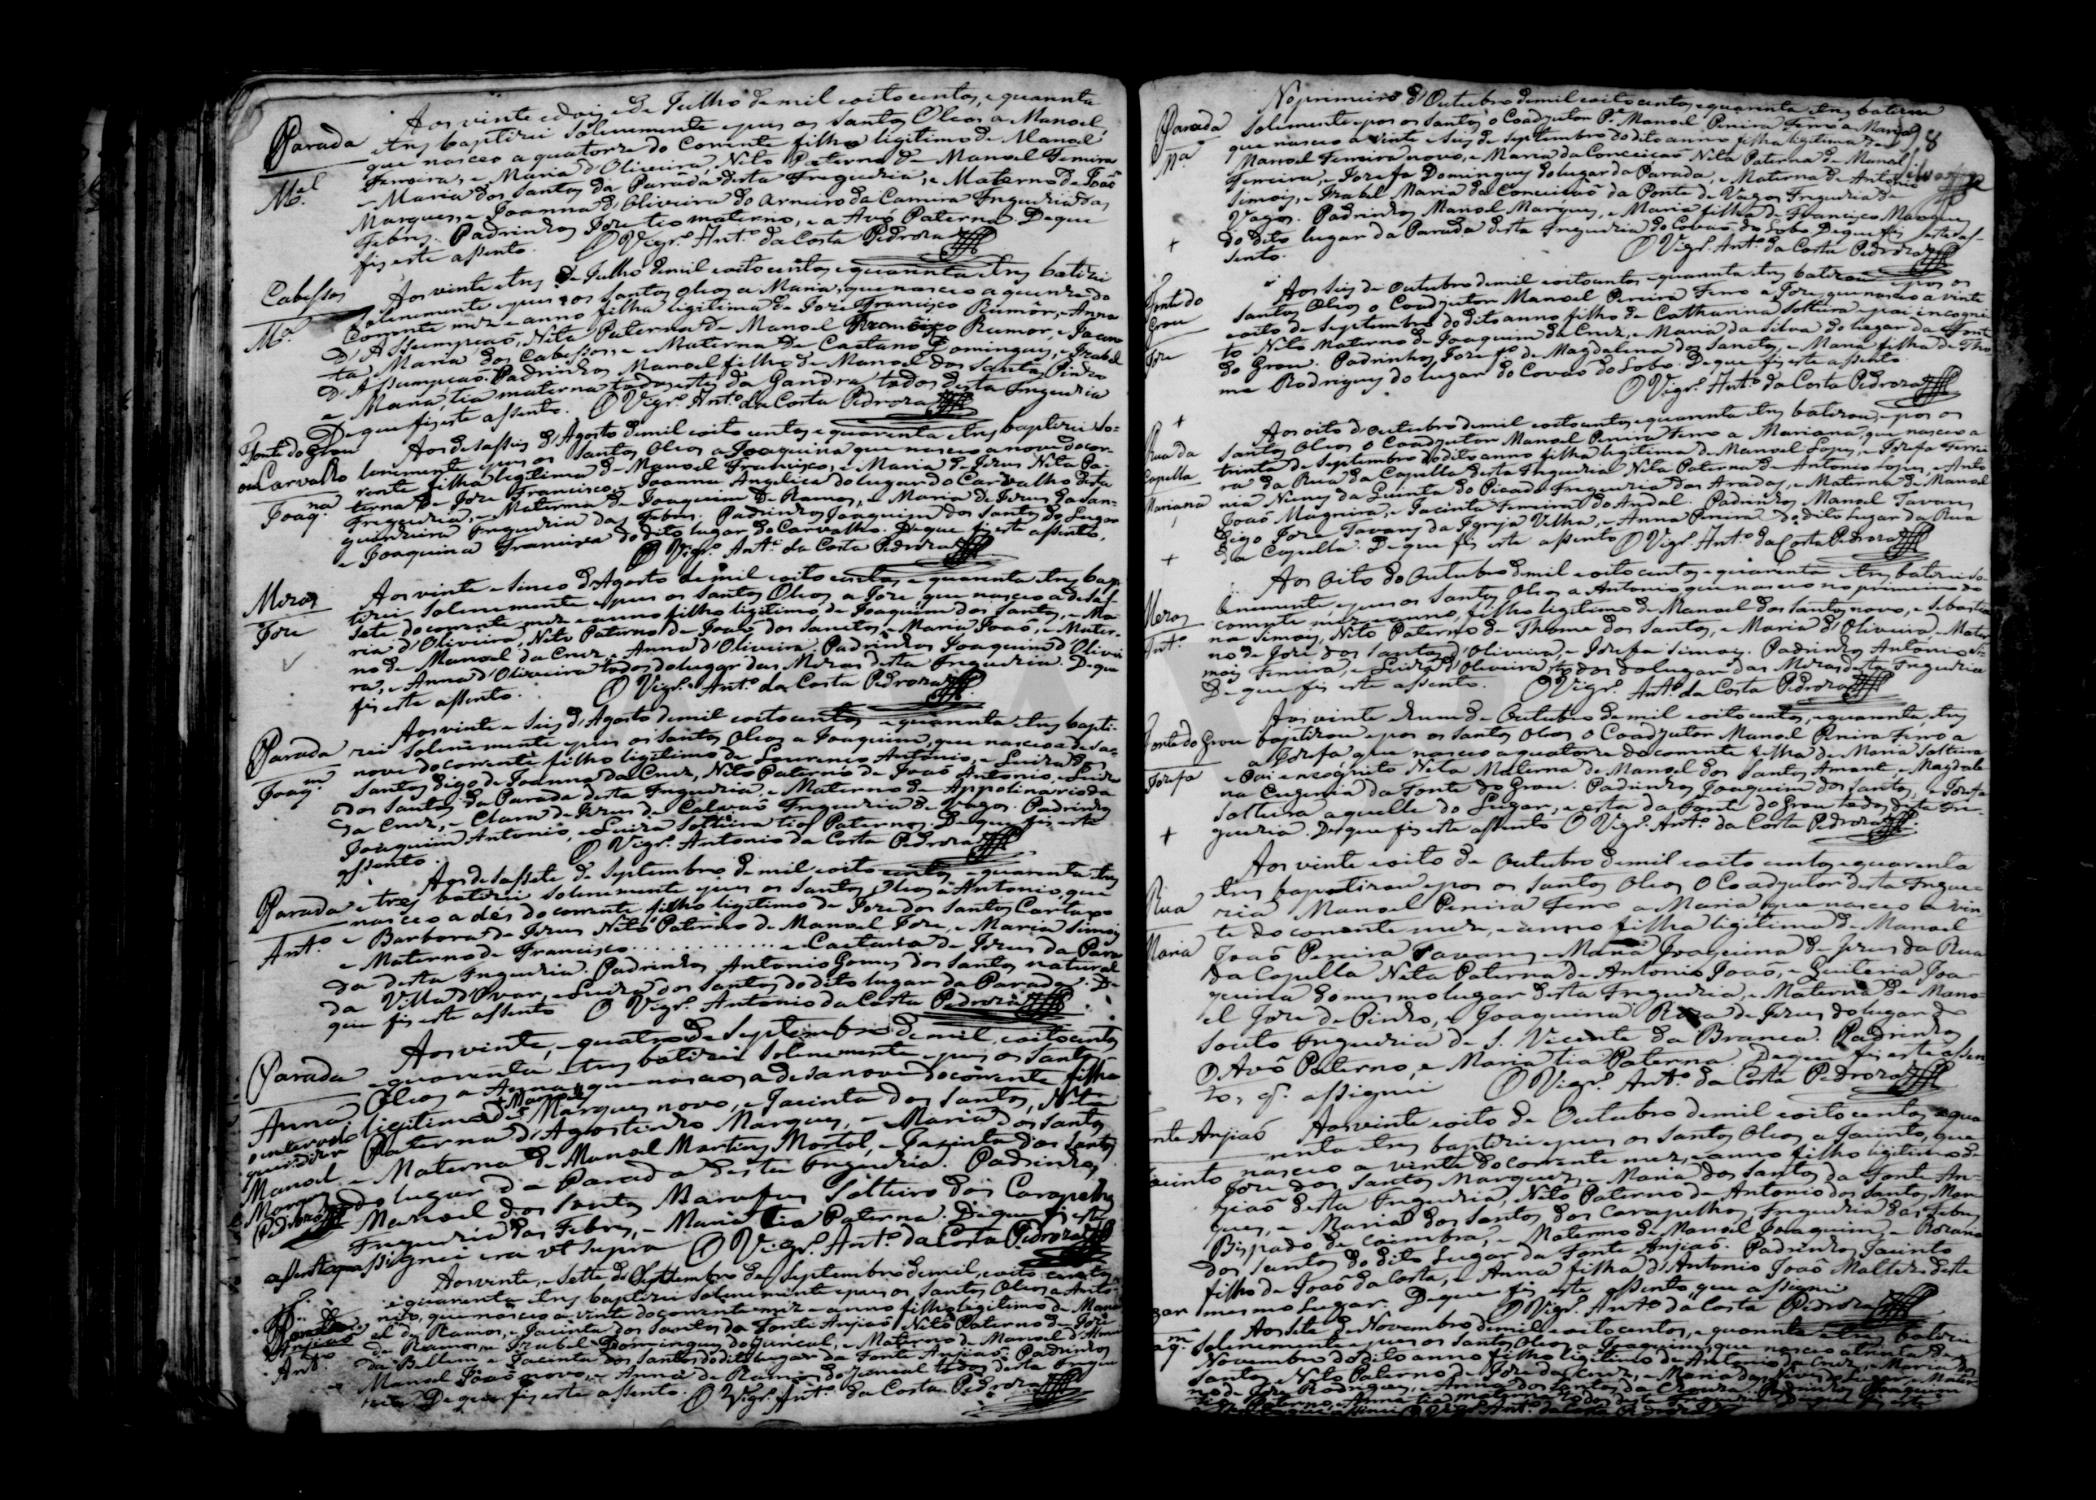 Aos vinte e dois de Julho de mil oito centos, e quarenta
Parada
e tres baptizei solenemente e pus os Santos Oleos a Manoel
que nasceo a quatorze do corrente filho legitimo de Manoel
M.el
Ferreira, e Maria d'Oliveira, Nito Paterno de Manoel Ferreira
e Maria dos Santos da Parada desta Freguezia, e Materno de João
Marques, e Joanna d'Oliveira do Arneiro da Camera Freguezia das
Febres. Padrinhos Joze tio materno, e a Avó Paterna. De que
fis este assento. O Vigr.º Ant.º da Costa Pedroza
Cabessos
Aos vinte e tres de Julho de mil oito centos e quarenta e tres batizei
M.ª
solenemente e pus os Santos Oleos a Maria, que nasceo a quinze do
corrente mez e anno filha legitima de Joze Francisco Rumor, e Anna
D'Assumpçaõ, Nita Paterna de Manoel Francisco Rumor, e Jacin-
ta Maria dos Cabessos e Materna de Caetano Domingues, e Izabel
D'Assumpçaõ. Padrinhos Manoel filho de Manoel dos Santos Pindro
e Maria, tia materna todos estes da Gandra, todos desta Freguezia
De que fis este assento. O Vigr.º Ant.º da Costa Pedroza
Fonte do Grou
ou Carvalho
Joaq.na
Aos desasseis d'Agosto de mil oito centos e quarenta e tres baptizei so-
lenemente e pus os Santos Oleos a Joaquina que nasceo a nove do cor-
rente filha legitima de Manoel Francisco, e Maria de Jezus Nita Pa-
terna de Joze Francisco, e Joanna Angelica do lugar do Carvalho desta
Freguezia, e Materna de Joaquim de Ramos, e Maria de Jezus da San-
guinheira Freguezia das Febres. Padrinhos Joaquim dos Santos do Lugar
e Joaquina Francisca do dito lugar do Carvalho. De que fis este assento.
O Vigr.º Ant.º da Costa Pedroza
Mezas
Joze
Aos vinte e sinco d'Agosto de mil oito centos, e quarenta e tres bap-
tizei solenemente e pus os Santos Oleos a Joze que nasceo a desas-
sete do corrente mez e anno filho legitimo de Joaquim dos Santos, e Ma-
ria d'Oliveira, Nito Paterno de João dos Santos e Maria João, e Mater-
no de Manoel da Cruz, e Anna d'Oliveira. Padrinhos Joaquim d'Olivei-
ra, e Anna d'Oliveira todos do lugar das Mezas desta Freguezia. De que
fis este assento. O Vigr.º Ant.º da Costa Pedroza
Parada
Joaq.m
Aos vinte e seis d'Agosto de mil oito centos e quarenta e tres bapti-
zei solenemente e pus os Santos Oleos a Joaquim, que nasceo a desa-
nove do corrente filho legitimo de Lourenço Antonio, e Luiza dos
Santos digo de Joanna da Cruz, Nito Paterno de João Antonio, e Luiza
dos Santos da Parada desta Freguezia, e Materno de Appolinario da
da Cruz, e Clara de Jezus de Calvaõ Freguezia de Vagos. Padrinhos
Joaquim Antonio, e Luiza Solteira tios Paternos. De que fis este
assento. O Vigr.º Antonio da Costa Pedroza
Parada
Ant.º
Aos desassete de Septembro de mil oito centos e quarenta e tres
e tres batizei solenemente e pus os Santos Oleos a Antonio, que
nasceo a dés do corrente filho legitimo de Joze dos Santos Cartaxo
e Barbora de Jezus Nito Paterno de Manoel Joze, e Maria Simois
e Materno de Francisco ............ e Caetana de Jezus da Para-
da desta Freguezia. Padrinhos Antonio Gomes dos Santos natural
da Villa d'Ovar, e Luiza dos Santos do dito lugar da Parada. De
que fis este assento O Vigr.º Antonio da Costa Pedroza
Parada
Anna
Aos vinte, e quatro de Septembro de mil, oito centos
e quarenta e tres batizei solenemente e pus os Santos
Oleos a Anna, que nasceo a desanove do corrente filha
legitima de Marques novo, e Jacinta dos Santos, Nita
Paterna d'Agostinho Marques, e Maria dos Santos
e Materna de Manoel Martins Mortal, e Jacinta dos Santos
do lugar da Parada desta Freguezia. Padrinhos
Manoel dos Santos Solteiro dos Carapelhos
Freguezia das Febres, e Maria tia Paterna. De que fis este
assento que assignei era ut supra O Vigr.º Ant.º da Costa Pedroza
Aos vinte, e sette de Septembro de mil, oito centos
e quarenta e tres baptizei solenemente e pus os Santos Oleos a Anto-
nio, que nasceo a vinte do corrente mez e anno filho legitimo de Mano-
el de Ramos, e Jacinta dos Santos da Fonte Anjiaõ Nito Paterno de Joze
de Ramos, e Izabel Domingues do Juncal, e Materno de Manoel d'Almei-
da Bellem e Jacinta dos Santos do dito lugar da Fonte Anjiaõ. Padrinhos
Manoel João novo, e Anna de Ramos do Juncal todos desta Fregue-
zia. De que fis este assento. O Vigr.º Ant.º da Costa Pedroza
Ant.º
No primeiro d'Outubro de mil oito centos e quarenta e tres batizou
Parada
M.ª
solenemente e pos os Santos o Coadjutor P.e Manoel Pereira Ferro a Maria
que nasceo a vinte e seis de Septembro do dito anno filha legitima de
Manoel Ferreira novo, e Maria da Conceicaõ Nita Paterna de Manoel
Ferreira, e Jozefa Domingues do lugar da Parada, e Materna de Antonio
Simois, e Izabel Maria da Conceicaõ da Ponte de Vagos Freguezia de
Vagos. Padrinhos Manoel Marques, e Maria filha de Francisco Marques
do dito lugar da Parada desta Freguezia do Covaõ do Lobo. De que fis este as-
sento. O Vigr.º Ant.º da Costa Pedroza
Fonte do
Grou
Joze
Aos seis de Outubro de mil oito centos e quarenta e tres batizou e pos os
Santos Oleos o Coadjutor Manoel Pereira Ferro a Joze que nasceo a vinte
e oito de Septembro do dito anno filho de Catharina Solteira e pai incogni-
to Nito Materno de Joaquim da Cruz, e Maria da Silva do lugar da Fonte
do Grou. Padrinhos Joze fº de Magdalena dos Santos, e Maria filha de Tho-
me Rodrigues do lugar do Covaõ do Lobo. De que fis este assento.
O Vigr.º Ant.º da Costa Pedroza
Rua da
Capella
Marianna
Aos oito d'Outubro de mil oito centos e quarenta e tres batizou, e pos os
Santos Oleos o Coadjutor Manoel Pereira Ferro a Mariana, que nasceo a
trinta de Septembro do dito anno filha legitima de Manoel Lopes, e Jozefa Ferrei-
ra da Rua da Capella desta Freguezia Nita Paterna de Antonio Lopes, e Anto-
nia Nunes da Quinta do Picado Freguezia das Aradas, e Materna de Manoel
João Magueira, e Jacinta Ferreira do Andal. Padrinhos Manoel Tavares
digo Joze Tavares da Igreja Velha, e Anna Pereira do dito lugar da Rua
da Capella. De que fis este assento O Vigr.º Ant.º da Costa Pedroza
Mezas
Ant.º
Aos oito do Outubro de mil oito centos e quarenta e tres batizei so-
lenemente, e pus os Santos Oleos a Antonio que nasceo no primeiro do
corrente mez e anno, filho legitimo de Manoel dos Santos novo, e Sebastia-
na Simois, Nito Paterno de Thome dos Santos, e Maria d'Oliveira e Mater-
no de Joze dos Santos d'Oliveira, e Jozefa Simois. Padrinhos Antonio Si-
mois Ferreira, e Luiza d'Oliveira todos do lugar das Mezas desta Freguezia
De que fis este assento. O Vigr.º Ant.º da Costa Pedroza
Fonte do Grou
Jozefa
Aos vinte e hum de Outubro de mil oito centos, e quarenta, e tres
baptizou e pos os Santos Oleos o Coadjutor Manoel Pereira Ferro a
a Jozefa, que nasceo a quatorze do corrente filha de Maria Solteira
e Pai encognito Nita Materna de Manoel dos Santos Amante, e Magdale-
na Eugenia da Fonte do Grou. Padrinhos Joaquim dos Santos, e Jozefa
Solteira aquelle do Lugar, e esta da Fonte do Grou todos desta Fre-
guezia. De que fis este assento O Vigr.º Ant.º da Costa Pedroza
Rua
Maria
Aos vinte e oito de Outubro de mil oito centos e quarenta
e tres baptizou e pos os Santos Oleos o Coadjutor desta Fregue-
zia Manoel Pereira Ferro a Maria, que nasceo a vin-
te do corrente mez, e anno filha legitima de Manoel
João Pereira Tavares e Maria Joaquina de Jezus da Rua
da Capella Nita Paterna de Antonio João, e Quiteria Joa-
quina do mesmo lugar desta Freguezia, e Materna de Mano-
el Joze de Pinho, e Joaquina Roza de Jezus do lugar do
Souto Freguezia de S. Vicente da Branca. Padrinhos
O Avô Paterno, e Maria tia Paterna. De que fis este assen-
to, q. assignei O Vigr.º Ant.º da Costa Pedroza
nte Anjiaõ
Jacinto
Aos vinte e oito de Outubro de mil oito centos e qua-
renta e tres baptizei e pus os Santos Oleos a Jacinto, que
nasceo a vinte do corrente mez, e anno filho legitimo de
Joze dos Santos Marques, e Maria dos Santos da Fonte An-
jiaõ desta Freguezia, Nito Paterno de Antonio dos Santos Mar-
ques, e Maria dos Santos dos Carapelhos Freguezia das Febres
Bispado de Coimbra, e Materno de Manoel Joaquim, e Rozaria
dos Santos do dito Lugar da Fonte Anjiaõ. Padrinhos Jacinto
filho de João da Costa, e Anna filha d'Antonio João Maltez deste
mesmo Lugar. De que fis este assento, que assignei
O Vigr.º Ant.º da Costa Pedroza
Aos sete de Novembro de mil oito centos, e quarenta e tres batizei
solenemente e pus os Santos Oleos a Joaquim, que nasceo
Novembro do dito anno filho legitimo de Antonio da Cruz, e Maria dos
Santos, Nito Paterno de Joze da Cruz, e Maria
no de Joze Rodrigues, e Anna dos Santos